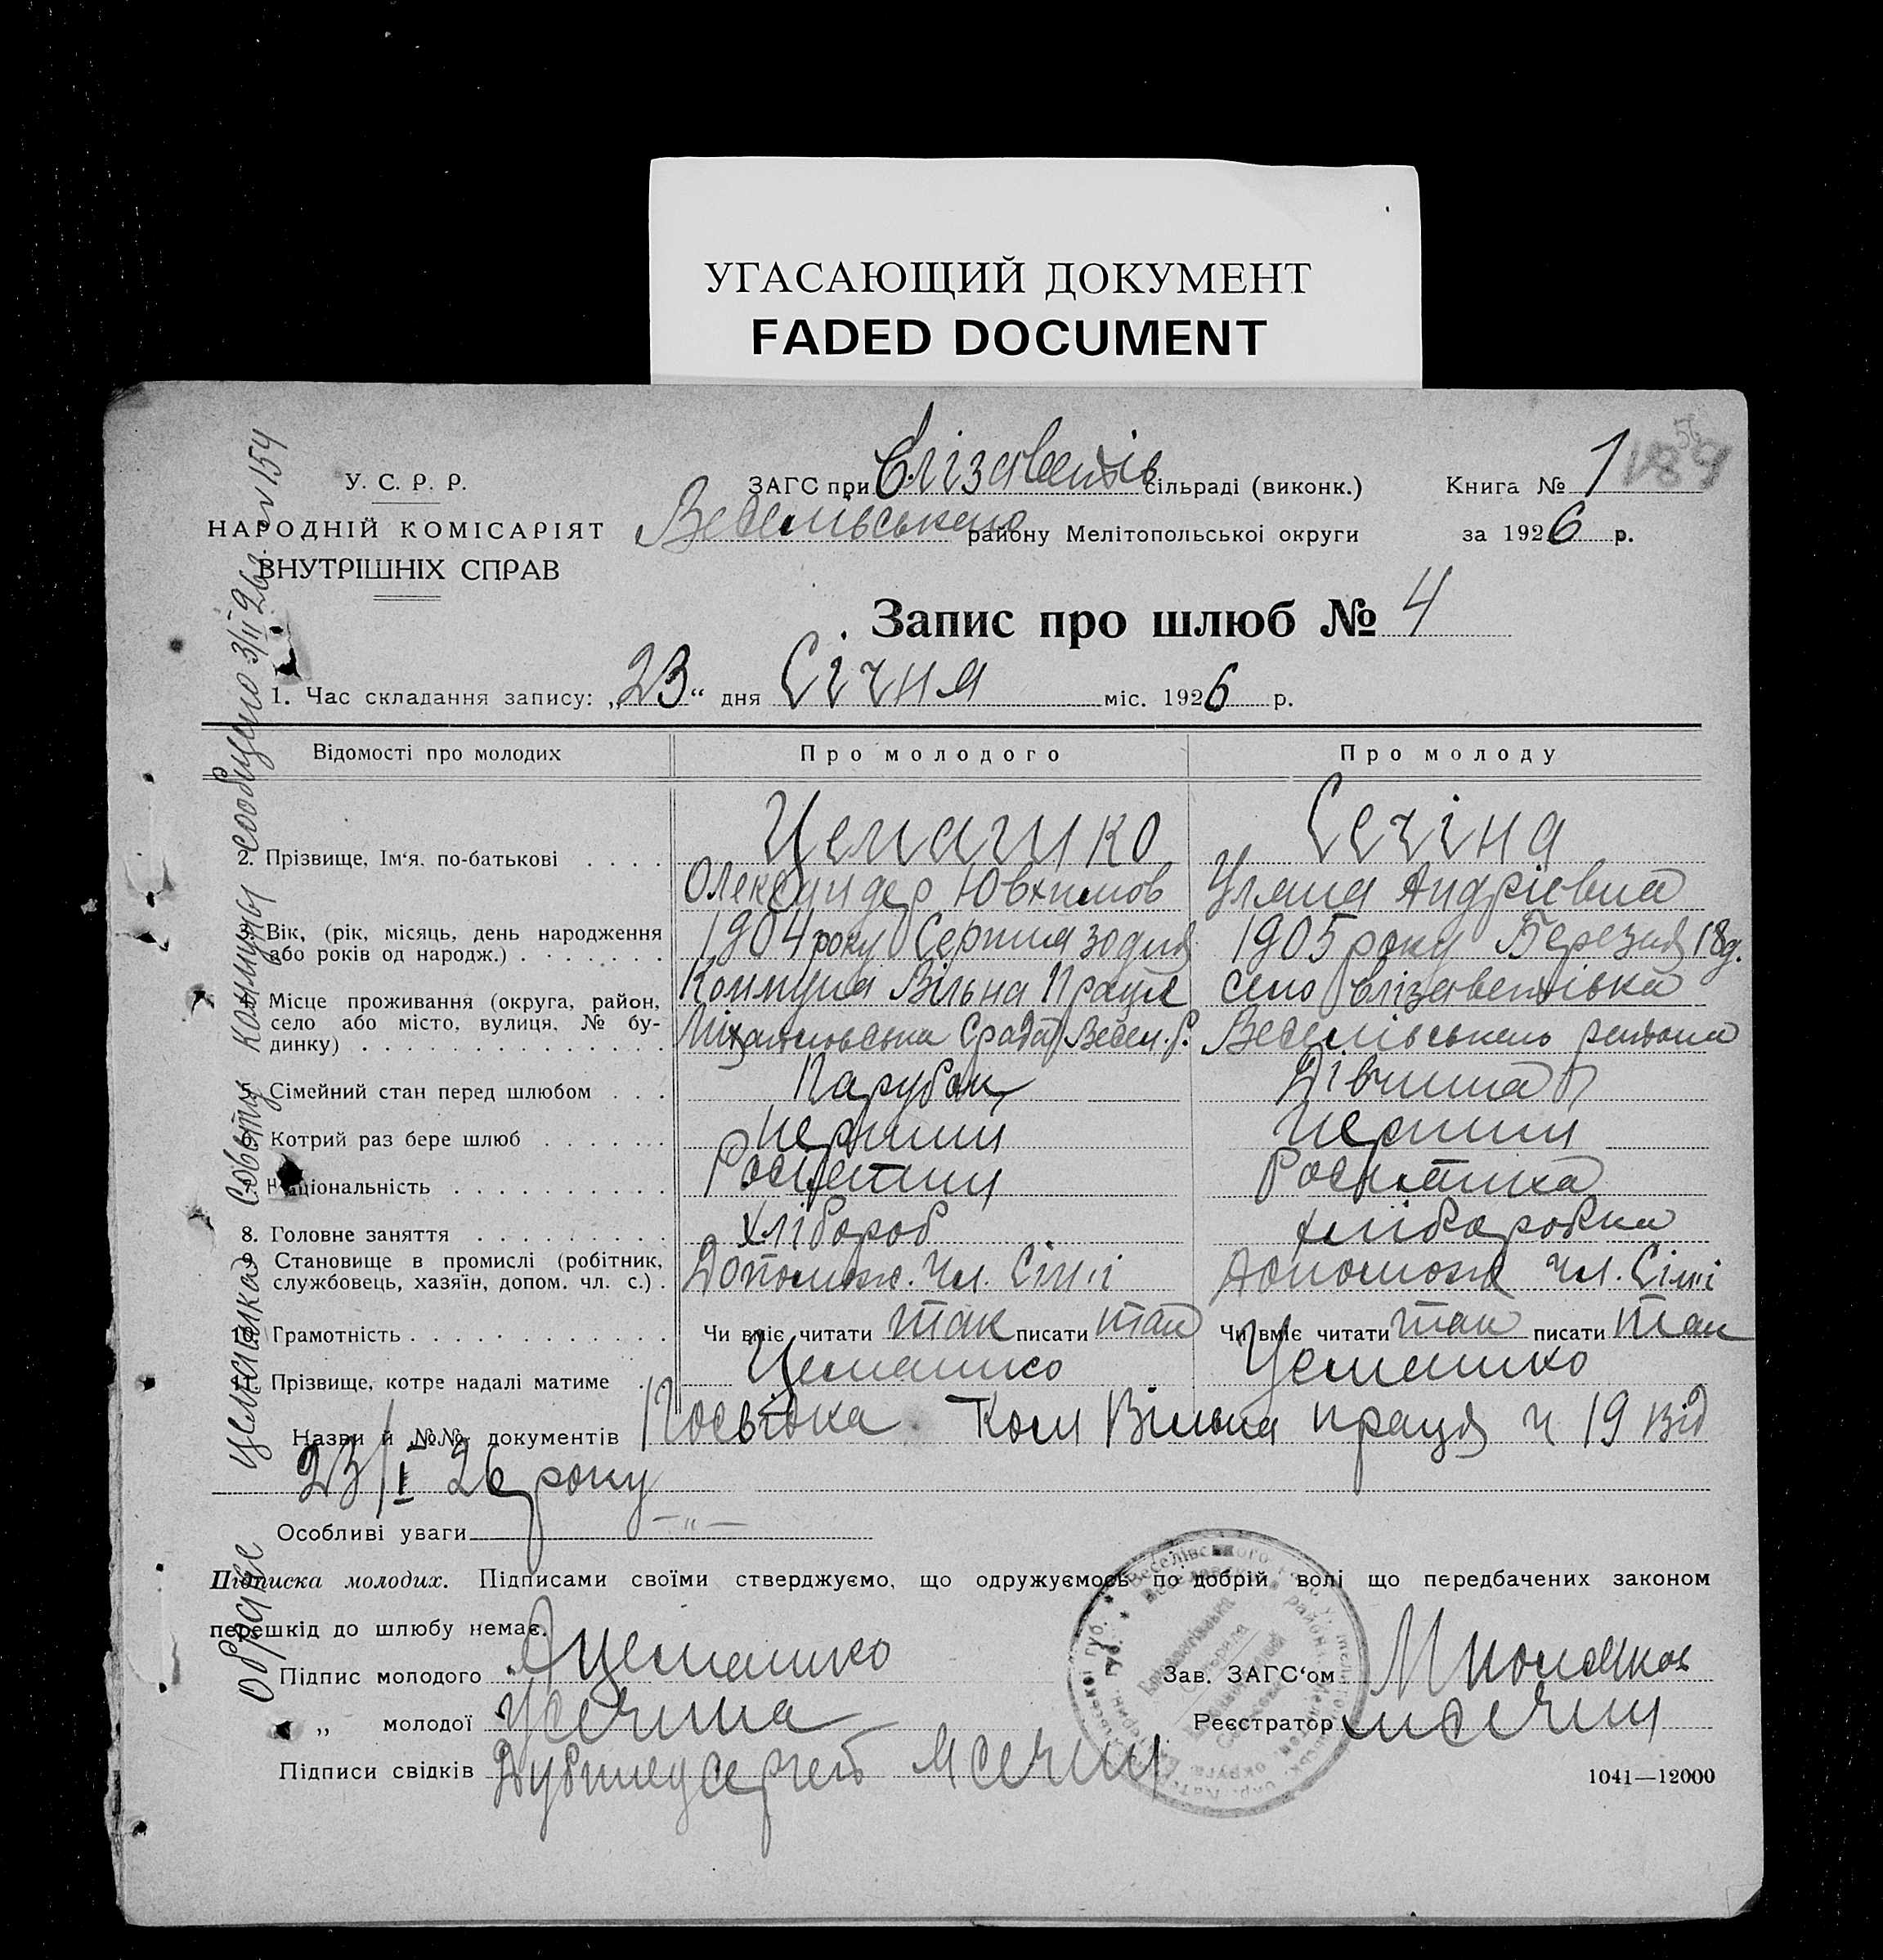 УГАСАЮЩИЙ ДОКУМЕНТ
FADED DOCUMENT
У. С. Р. Р.
НАРОДНІЙ КОМІСАРІЯТ
ВНУТРІШНІХ СПРАВ
ЗАГС при Єлізаветів сільраді (виконк.)
Веселівського району Мелітопольської округи
Книга № 1
за 1926 р.
Запис про шлюб № 4
1. Час складання запису: „23“ дня Січня міс. 1926 р.
Відомості про молодих
Про молодого
Про молоду
2. Прізвище, Ім‘я, по-батькові
Цемашко
Олександер Ювхимов
Сечіна
Уляна Андріевна
3. Вік, (рік, місяць, день народження або років од народж.)
1904 року Серпня 30 дня
1905 року Березня 18 д.
Місце проживання (округа, район, село або місто, вулиця, № будинку)
Коммуна Вільна Праця
Срада Весел. р.
село Єлізаветівка
Веселівського района
5. Сімейний стан перед шлюбом
Парубок
Дівчина
6. Котрий раз бере шлюб
перший
перший
Національність
8. Головне заняття
хлібороб
хліборобка
9. Становище в промислі (робітник, службовець, хазяїн, допом. чл. с.)
Допомож. чл. Сімі
Допомож чл. Сімі
10. Грамотність
Чи вміє читати так писати так
Чи вміє читати так писати так
11. Прізвище, котре надалі матиме
Цемашко
Цемашко
Назви й №№ документів Посвідка Ком Вільна праця ч 19 від
23/I 26 року
Особливі уваги —„—
Підписка молодих. Підписами своїми стверджуємо, що одружуємось по добрій волі що передбачених законом
перешкід до шлюбу немає.
Підпис молодого А Цемашко
„ молодої У Сечина
Підписи свідків Сергей Сечин
Зав. ЗАГС‘ом
Реєстратор Сечин
1041—12000
О браке Цемашка Совету Коммуны сообщено 3/II 26 г. № 154